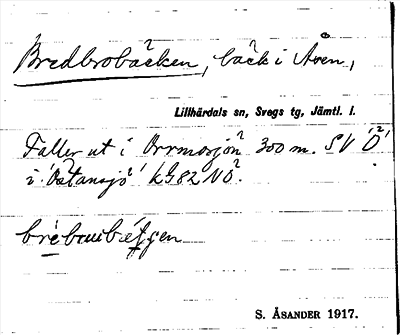 Bredbrobäcken, bäck i Åven,
Lillhärdals sn, Svegs tg, Jämtl. l.
Faller ut i Orrmosjön 300 m. SV 'Ö'
i 'Östansjö' kbl 82 NÖ.
S. ÅSANDER 1917.